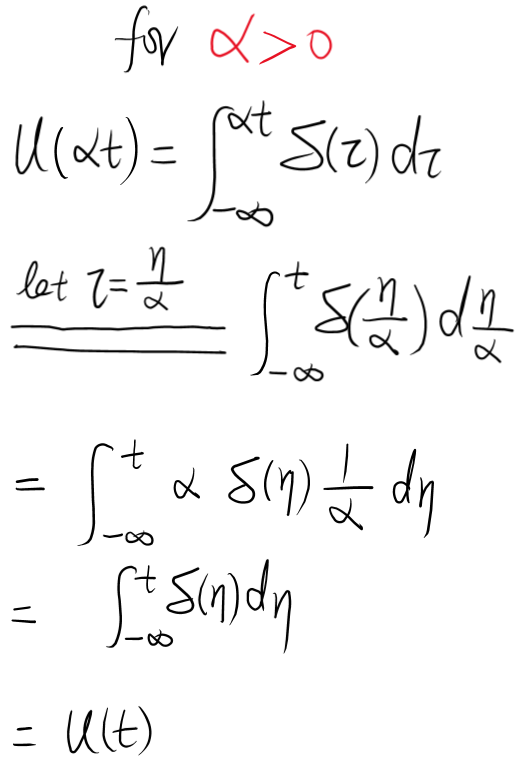 for α>0
u(αt) = ∫_{-∞}^{αt} δ(τ) dτ
let τ = η/α ∫_{-∞}^{t} δ(η/α) d η/α
= ∫_{-∞}^{t} α δ(η) 1/α dη
= ∫_{-∞}^{t} δ(η) dη
= u(t)